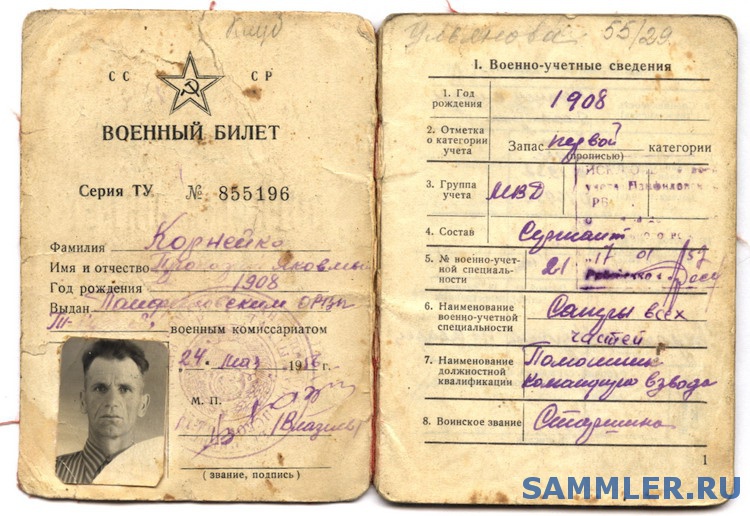 Клуб
СС СР
ВОЕННЫЙ БИЛЕТ
Серия ТУ № 855196
Фамилия Корнейко
Имя и отчество Яковлевич
Год рождения 1908
Выдан Панфиловским ОРВК
военным комиссариатом
"24" мая 1956 г.
М. П.
(звание, подпись)
Ульянова 55/29
I. Военно-учетные сведения
1. Год рождения 1908
2. Отметка о категории учета Запас первой категории
(прописью)
3. Группа учета МВД
4. Состав Сержант
5. № военно-учетной специальности 21
17 01 57
6. Наименование военно-учетной специальности Сапёры всех частей
7. Наименование должностной квалификации Помошник командира взвода
8. Воинское звание Старшина
1
SAMMLER.RU